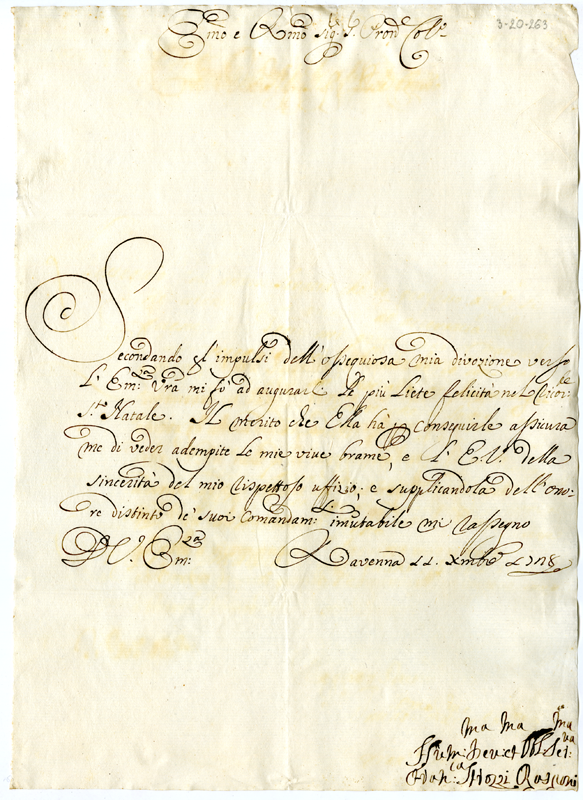 3-20-263
Emo e Rmo Sig.r P.ron Col.mo
Secondando gl'impulsi dell'ossequiosa mia divozione verso
l'Em:za Vra mi fò ad augurarle le più liete felicità nel Ricor:te
S.to Natale. Il merito che Ella hà p conseguirle assicura
me di veder adempite le mie vive brame, e l'E.V. della
sincerità del mio rispettoso uffizio; e supplicandola dell'ono-
re distinto de' suoi Comandam:ti imutabile mi rassegno
D V. Em:za Ravenna 11. Xmbre 1718
ma ma ma
Hum: Dev: et Obl: Ser:
Fran:ca Strozzi Rasponi